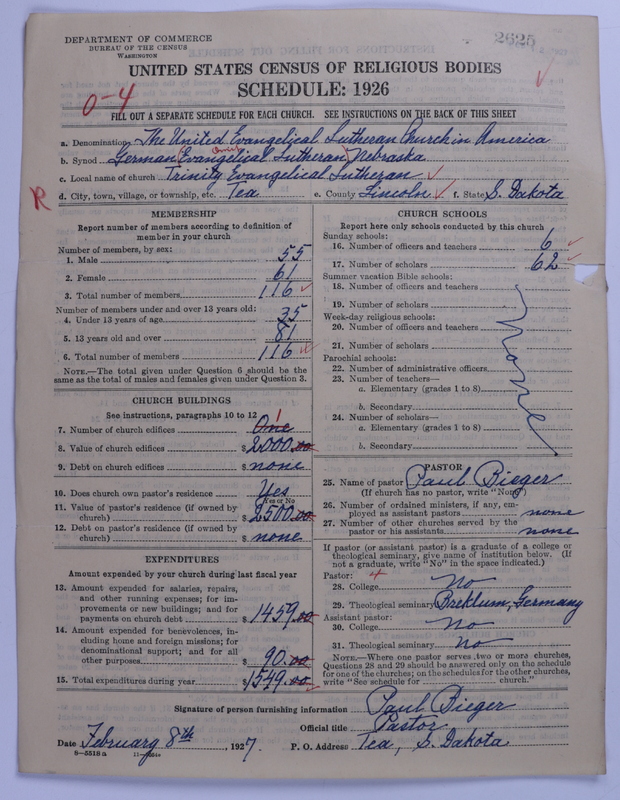 DEPARTMENT OF COMMERCE
BUREAU OF THE CENSUS
WASHINGTON
2625
UNITED STATES CENSUS OF RELIGIOUS BODIES
SCHEDULE: 1926
0-4
FILL OUT A SEPARATE SCHEDULE FOR EACH CHURCH. SEE INSTRUCTIONS ON THE BACK OF THIS SHEET
a. Denomination The United Evangelical Lutheran Church in America
b. Synod German Evangelical Lutheran, Nebraska
c. Local name of church Trinity Evangelical Lutheran
R
d. City, town, village, or township, etc. Tea e. County Lincoln f. State S. Dakota
MEMBERSHIP
Report number of members according to definition of
member in your church
Number of members, by sex:
1. Male 55
2. Female 61
3. Total number of members 116
Number of members under and over 13 years old:
4. Under 13 years of age 35
5. 13 years old and over 81
6. Total number of members 116
NOTE.—The total given under Question 6 should be
same as the total of males and females given under Question 3.
CHURCH BUILDINGS
See instructions, paragraphs 10 to 12
7. Number of church edifices One 1
8. Value of church edifices $ 2000.00
9. Debt on church edifices $ none
10. Does church own pastor's residence Yes
Yes or No
11. Value of pastor's residence (if owned by
church) $ 2500.00
12. Debt on pastor's residence (if owned by
church) $ none
EXPENDITURES
Amount expended by your church during last fiscal year
13. Amount expended for salaries, repairs,
and other running expenses; for im-
provements or new buildings; and for
payments on church debt $ 1459.00
14. Amount expended for benevolences, in-
cluding home and foreign missions; for
denominational support; and for all
other purposes $ 90.00
15. Total expenditures during year $ 1549.00
CHURCH SCHOOLS
Report here only schools conducted by this church
Sunday schools:
16. Number of officers and teachers 6
17. Number of scholars 62
Summer vacation Bible schools:
18. Number of officers and teachers
19. Number of scholars
Week-day religious schools:
20. Number of officers and teachers
21. Number of scholars
Parochial schools:
22. Number of administrative officers
23. Number of teachers—
a. Elementary (grades 1 to 8)
b. Secondary
24. Number of scholars—
a. Elementary (grades 1 to 8)
b. Secondary
None
PASTOR
25. Name of pastor Paul Bieger
(If church has no pastor, write "None")
26. Number of ordained ministers, if any, em-
ployed as assistant pastors none
27. Number of other churches served by the
pastor or his assistants none
If pastor (or assistant pastor) is a graduate of a college or
theological seminary, give name of institution below. (If
not a graduate, write "No" in the space indicated.)
Pastor: 4
28. College No
29. Theological seminary Breklum, Germany
Assistant pastor:
30. College No
31. Theological seminary No
NOTE.—Where one pastor serves two or more churches,
Questions 28 and 29 should be answered only on the schedule
for one of the churches; on the schedules for the other churches,
write "See schedule for church."
Signature of person furnishing information Paul Bieger
Official title Pastor
Date February 8th, 1927. P. O. Address Tea, S. Dakota
8—5518 a